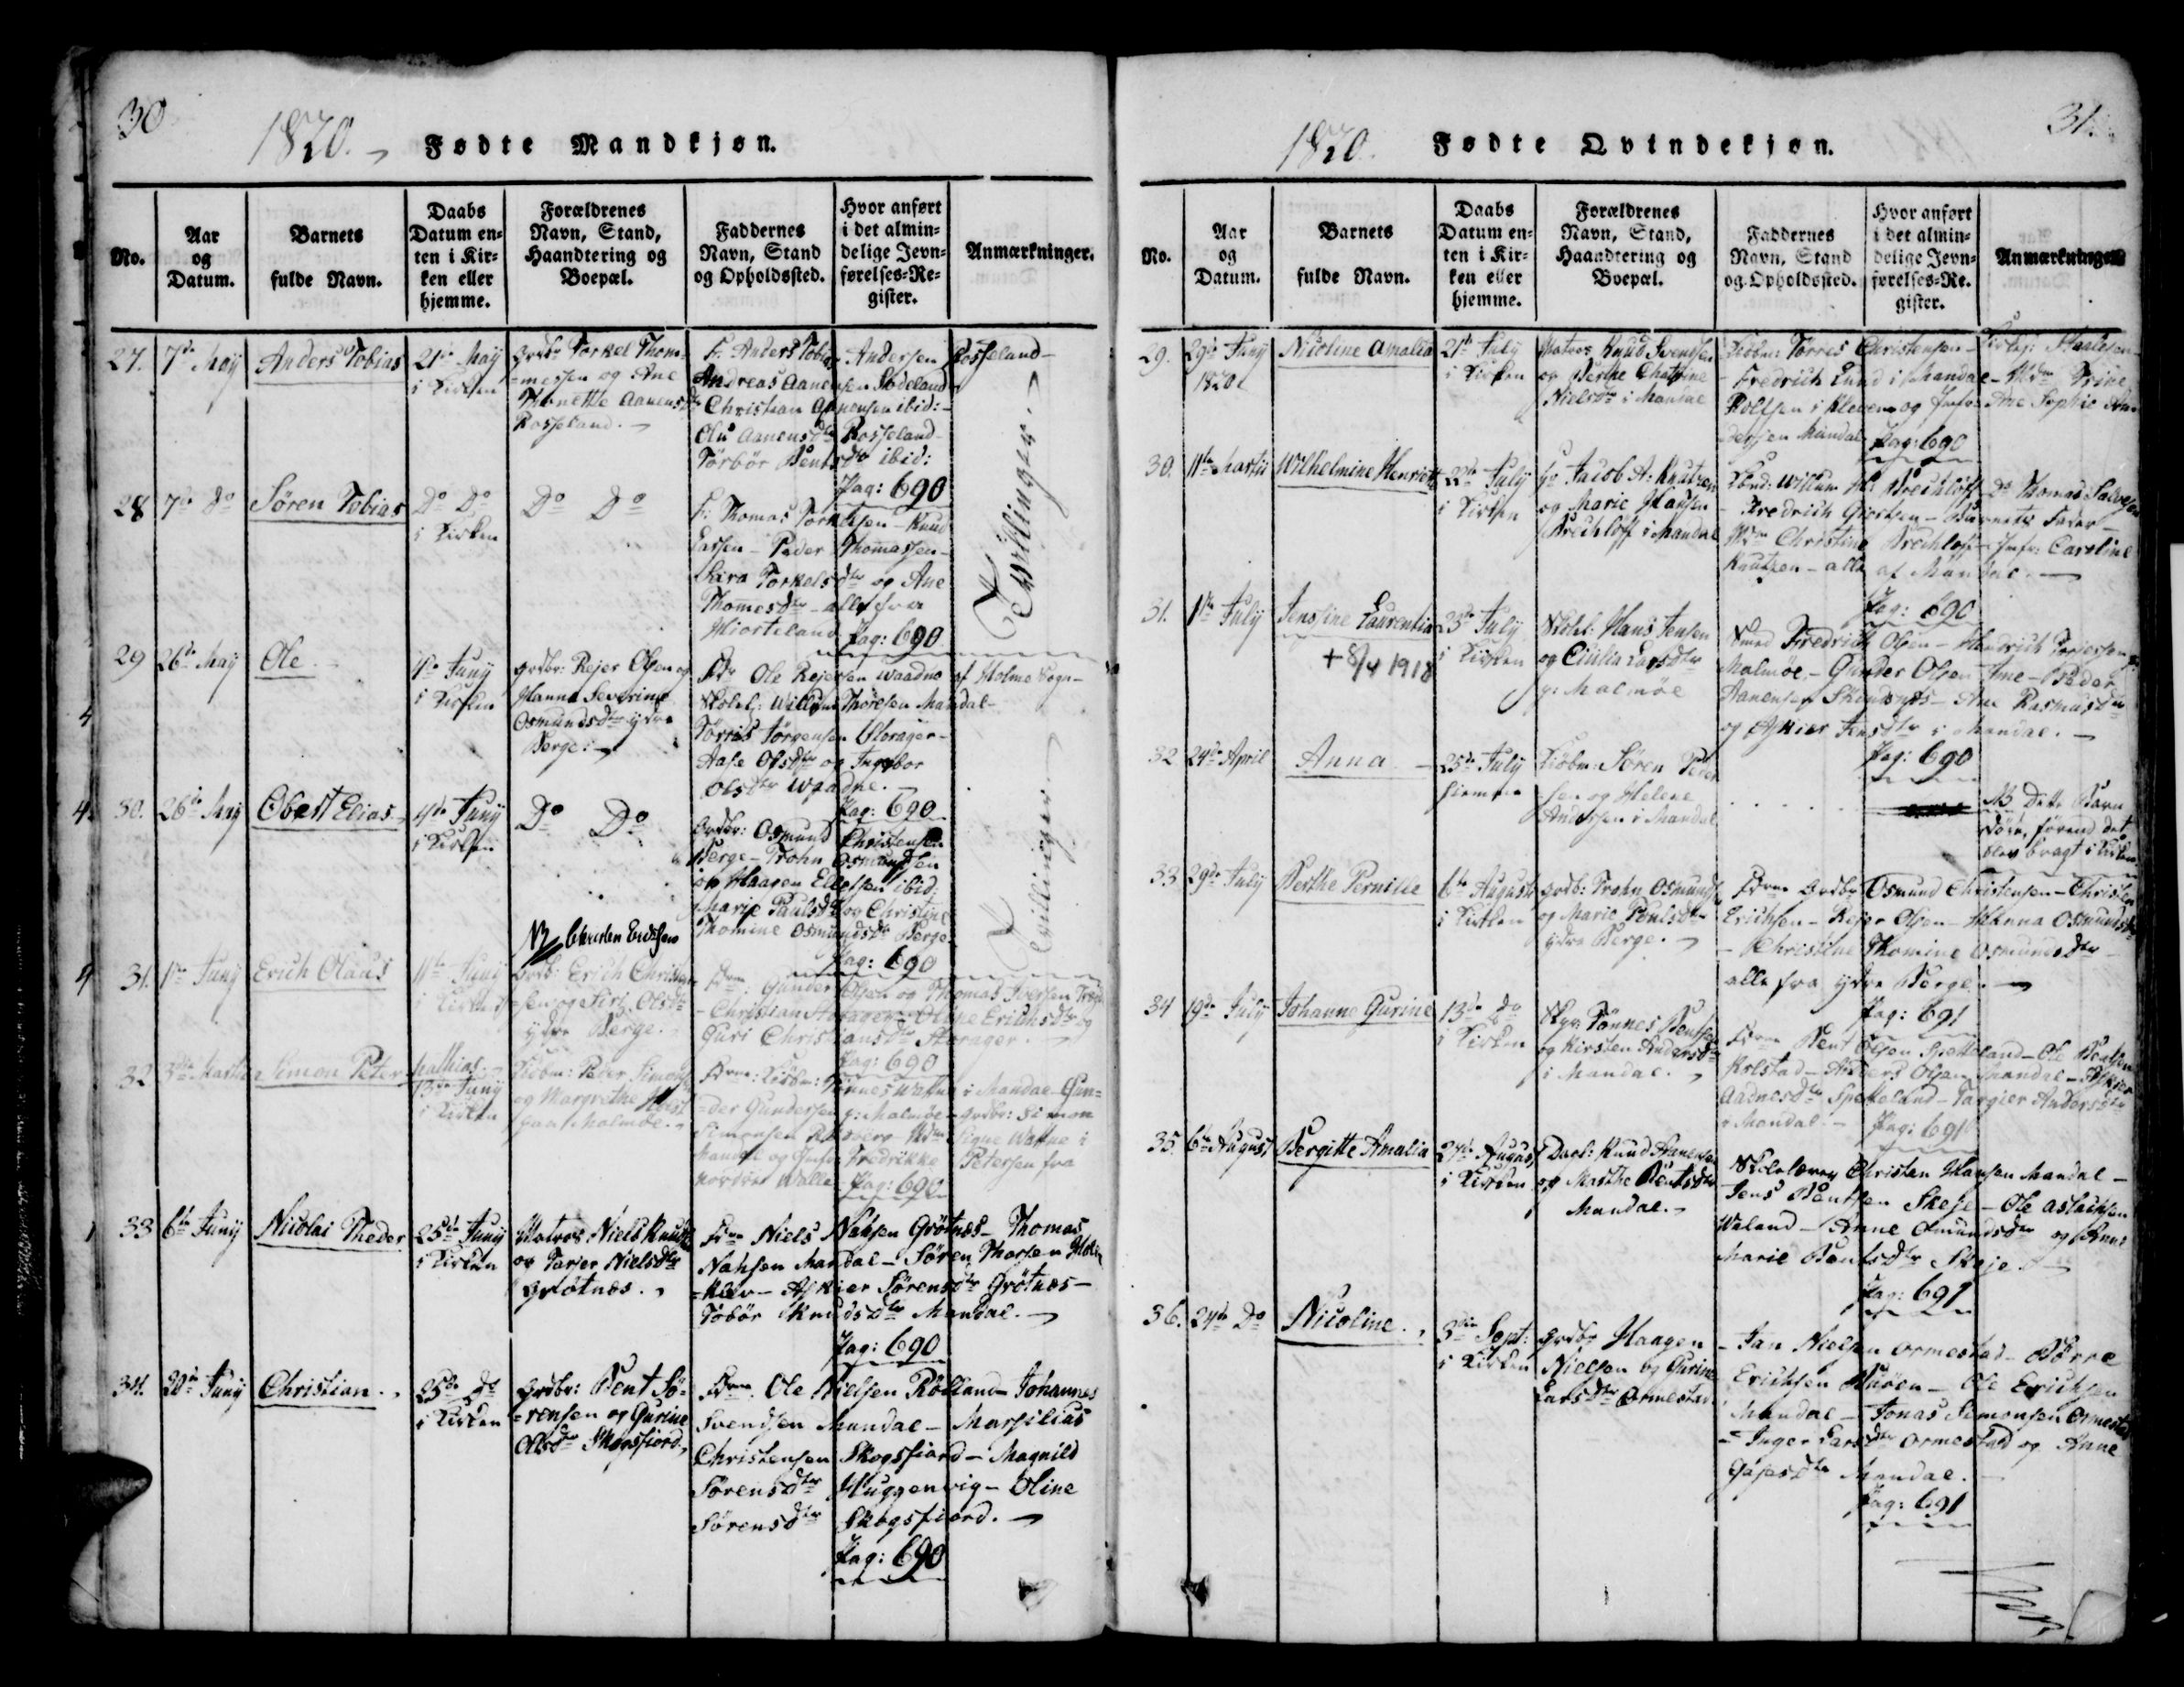 30
1820.
Fødte Mandkjøn.
No.
Aar
og
Datum.
Barnets
fulde Navn.
Daabs
Datum en-
ten i Kir-
ken eller
hjemme.
Forældrenes
Navn, Stand,
Haandtering og
Boepæl.
Faddernes
Navn, Stand
og Opholdssted.
Hvor anført
i det almin-
delige Jevn-
førelses-Re-
gister.
Anmærkninger.
27. 7de May Anders Tobias 21de May
i Kirken
Grdbr Torkel Thom-
messen og Ane
Thonette Aanensdtr
Rosseland.
F. Anders Tobias Andersen Rosseland-
Andreas Aanensen Sødeland
Christian Aanensen ibid:
Olu Aanensdtr Rosseland-
Torbør Bentsdtr ibid:
Pag: 690
Tvillinger
28 7de Do Søren Tobias Do Do
i Kirken
Do Do
F: Thomas Torkelsen - Knud
Larsen - Peder Thomassen-
Siri Torkelsdtr og Ane
Thomesdtr - alle fra
Hiorteland Pag: 690
29 26de May Ole 4de Juny
i Kirken
Grdbr: Rejer Olsen og
Hanna Severine
Osmundsdtr ydre
Berge.
Fdr Ole Rejersen Waadne af Holme Sogn-
Skolel: Willum Thoresen Mandal-
Torris Jørgensen Udorager-
Aase Olsdtr og Ingebor
Olsdtr Waadne.
Pag: 690
Tvillinger
30. 26de May Obert Elias 4de Juny
i Kirken
Do Do
Grdbr: Osmund Christensen
Berge - Trohn Osmundsen
og Haagen Ellefsen ibid:
Marie Paulsdtr og Christine
Thomine Osmundsdtr Berge
Pag: 690
NB Christen Erichsen
31. 1ste Juny Erich Olaus 11te Juny
i Kirken
Grdb: Erich Christen-
sen og Siri Olsdtr
ydre Berge.
Fdrne: Gunder Olsen og Thomas Iversen
- Christian Storager - Oline Erichsdtr og
Guri Christiansdtr Storager.
Pag: 690
32 Martii Simon Peter Mathias
13de Juny
i Kirken
Kiøbm: Peder Simonsen
og Margrethe
paa Malmøe.
Fdrne: Kiøbm: Tønnes Wattne i Mandal - Gun-
der Gundersen p: Malmøe - Grdbr: Simon
Simonsen Signe Wattne i
Mandal og Jmfr Fredrikke Petersen fra
nordre Walle - Pag: 690
33 6te Juny Nicolai Theder 25de Juny
i Kirken
Matros Niels Knudsen
og Tarjer Nielsdtr
Grøtnes.
Fdrne Niels Nahsen Grøtnes - Thomas
Nahsen Mandal - Søren Thorsen Hol-
- Asgier Sørensdtr Grøtnes -
Tobør Knudsdtr Mandal.
Pag: 690
34. 20de Juny Christian 25de Do
i Kirken
Grdbr: Bent Sø-
rensen og Gurine
Olsdtr Skogsfiord.
Fdrne Ole Nielsen Rølland - Johannes
Svendsen Mandal - Marsilius
Christensen Skogsfiord - Magnild
Sørensdtr Huggenvig - Oline
Sørensdtr Skogsfiord.
Pag: 690
31
1820.
Fødte Qvindekjøn.
No.
Aar
og
Datum.
Barnets
fulde Navn.
Daabs
Datum en-
ten i Kir-
ken eller
hjemme.
Forældrenes
Navn, Stand,
Haandtering og
Boepæl.
Faddernes
Navn, Stand
og Opholdssted.
Hvor anført
i det almin-
delige Jevn-
førelses-Re-
gister.
Anmærkninger
29. 29de Juny
1820
Nicoline Amalia 21de July
i Kirken
Matros Knud Svendsen
og Berthe Chatrine
Nielsdtr i Mandal
Kiøbm: Torres Christensen -
Fredrich Lund i Mandal - Mdm Trine
Rolfsen i Kleven og Jmfr Ane Sophie An-
dersen Mandal Pag: 690
30. 11te Martii Wilhelmine Henriette 22de July
i Kirken
Hr Jacob A: Knutzen
og Marie Hansen
Brechloff i Mandal
Willum Hr Brechloff - Do Thomas Salvesen
- Fredrich Giertsen - Barnets Fader -
Mdm Christine Brechloff - Jmfr: Caroline
Knutzen - alle af Mandal.
Pag: 690
31. 1ste July Jensine Laurentia
+ 8/4 1918
23de July
i Kirken
Skolel: Hans Jensen
og Cicilia Larsdtr
p: Malmöe
Smed Fredrich Olsen - Hendrich Torjersen
Malmøe - Gunder Olsen Ime - Peder
Aanensen Skinsnes - Ane Rasmusdtr
og Asgier Jensdtr i Mandal.
Pag: 690
32 24de April Anna 25de July
hjemme
Kiøbm: Søren Peter-
sen og Helene
Andersen i Mandal
NB Dette Barn
døde, førend det
blev bragt i Kirken
33 29de July Berthe Pernille 6te August
i Kirken
Grdb: Trohn Osmundsen
og Marie Poulsdtr
ydre Berge.
Fdrne Grdbr Osmund Christensen - Christen
Erichsen - Rejer Olsen - Hanna Osmundsdtr
- Christine Thomine Osmundsdtr
alle fra ydre Berge.
Pag: 691
34 19de July Johanne Gurine 13de Do
i Kirken
Skpr: Tønnes Bentsen
og Kirsten Andersdtr
i Mandal.
Fdrne Bent Olsen Spetteland - Ole Bentsen
Holstad - Anders Olsen Mandal - Asgier
Aadnesdtr Spetteland - Targier Andersdtr
i Mandal. - Pag: 691
35. 6te August Bergitte Amalia 27de August
i Kirken
Dagl: Knud Aanensen
og Marthe Bentsdtr
Mandal.
Skolelærer Christen Hansen Mandal -
Jens Bentsen Skeje - Ole Aslachsen
Waland - Anne Omundsdtr og Anne
Marie Bentsdtr Skeje.
Pag: 691
36. 24de Do Nicoline. 3die Sept:
i Kirken
Grdbr Haagen
Nielsen og Gurine
Larsdtr Ormestad.
- Jan Nielsen Ormestad - Børre
Erichsen Buøen - Ole Erichsen
Mandal - Jonas Simonsen Ormestad
- Inger Larsdtr Ormestad og Anne
Gjøsesdtr Mandal.
Pag: 691